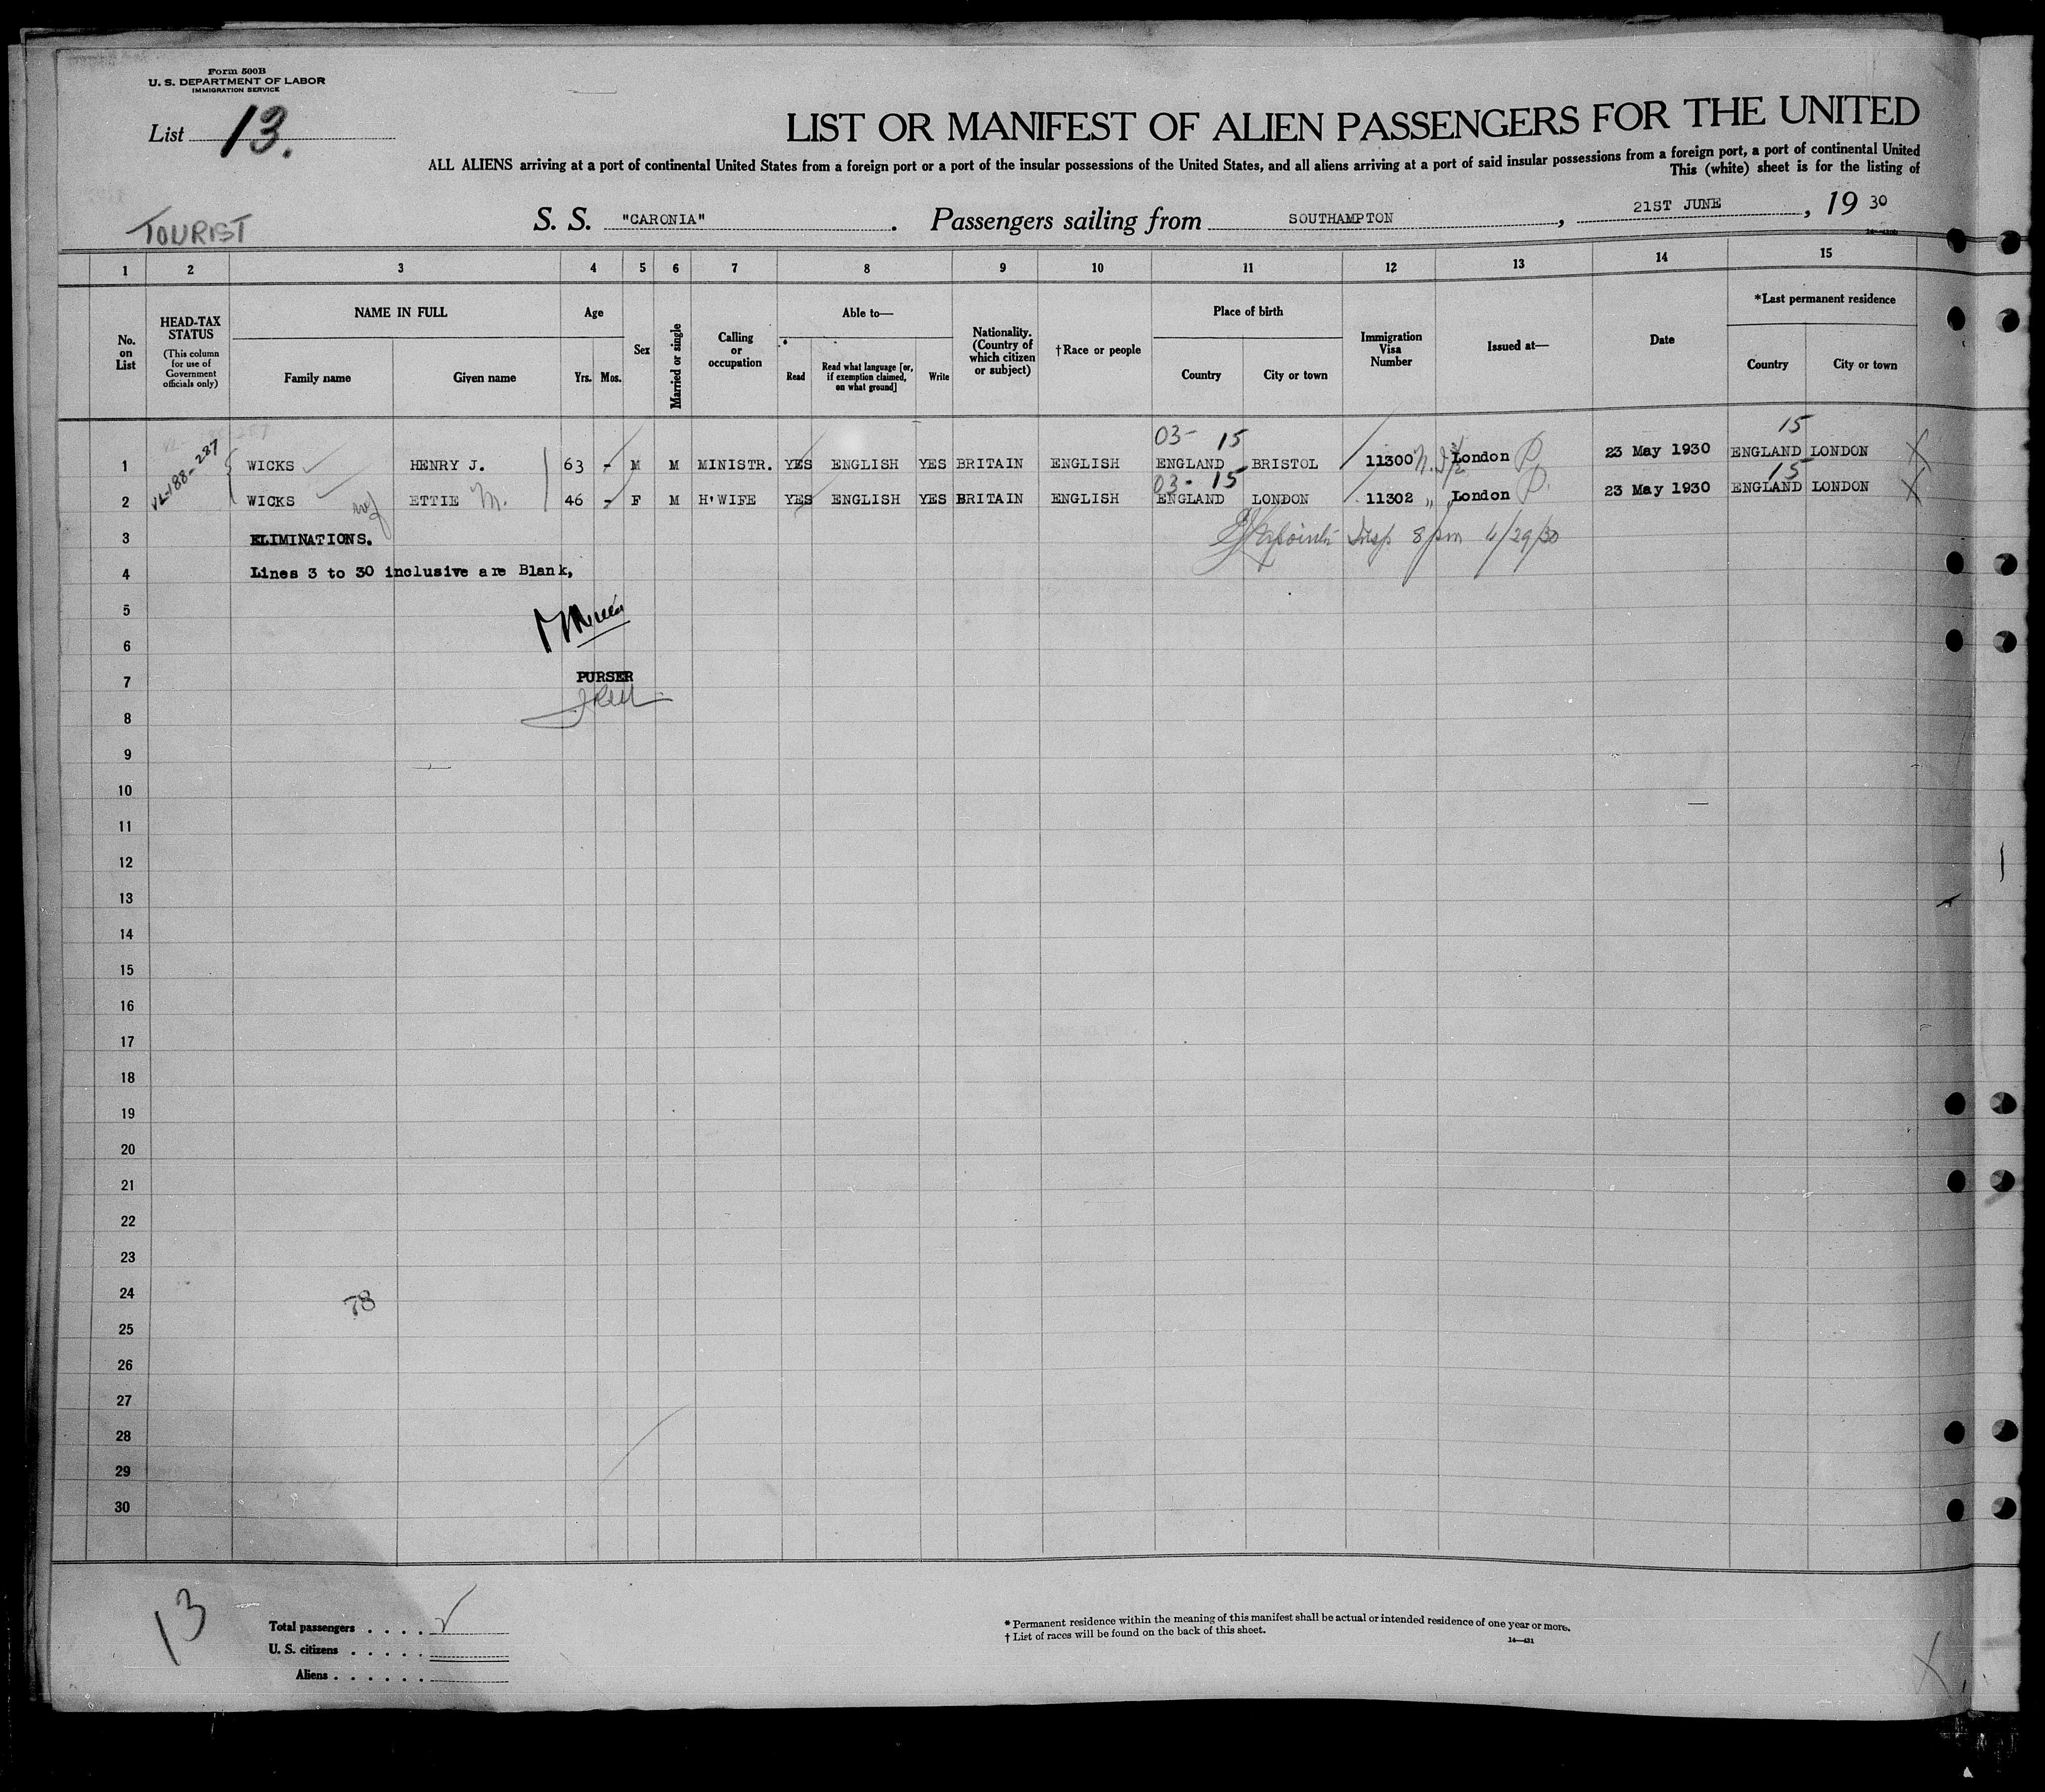 Form 500B
U. S. DEPARTMENT OF LABOR
IMMIGRATION SERVICE
List 13.
LIST OR MANIFEST OF ALIEN PASSENGERS FOR THE UNITED
ALL ALIENS arriving at a port of continental United States from a foreign port or a port of the insular possessions of the United States, and all aliens arriving at a port of said insular possessions from a foreign port, a port of continental United
This (white) sheet is for the listing of
TOURIST
S. S. "CARONIA" . Passengers sailing from SOUTHAMPTON , 21ST JUNE , 19 30
1 2 3 4 5 6 7 8 9 10 11 12 13 14 15
No. on List
HEAD-TAX STATUS
(This column for use of Government officials only)
NAME IN FULL
Family name Given name
Age
Yrs. Mos.
Sex
Married or single
Calling or occupation
Able to—
Read
Read what language [or, if exemption claimed, on what ground]
Write
Nationality. (Country of which citizen or subject)
†Race or people
Place of birth
Country City or town
Immigration Visa Number
Issued at—
Date
*Last permanent residence
Country City or town
03- 15 15
1 WICKS HENRY J. 63 - M M MINISTR. YES ENGLISH YES BRITAIN ENGLISH ENGLAND BRISTOL 11300 London P 23 May 1930 ENGLAND LONDON
03- 15 15
2 WICKS ETTIE M. 46 - F M H'WIFE YES ENGLISH YES BRITAIN ENGLISH ENGLAND LONDON 11302 " London P. 23 May 1930 ENGLAND LONDON
3 ELIMINATIONS. Insp 8 pm 6/29/30
4 Lines 3 to 30 inclusive are Blank,
5
6
7 PURSER
8
9
10
11
12
13
14
15
16
17
18
19
20
21
22
23
24 78
25
26
27
28
29
30
13
Total passengers . . . .
U. S. citizens . . . . .
Aliens . . . . . .
* Permanent residence within the meaning of this manifest shall be actual or intended residence of one year or more.
† List of races will be found on the back of this sheet.
14—431